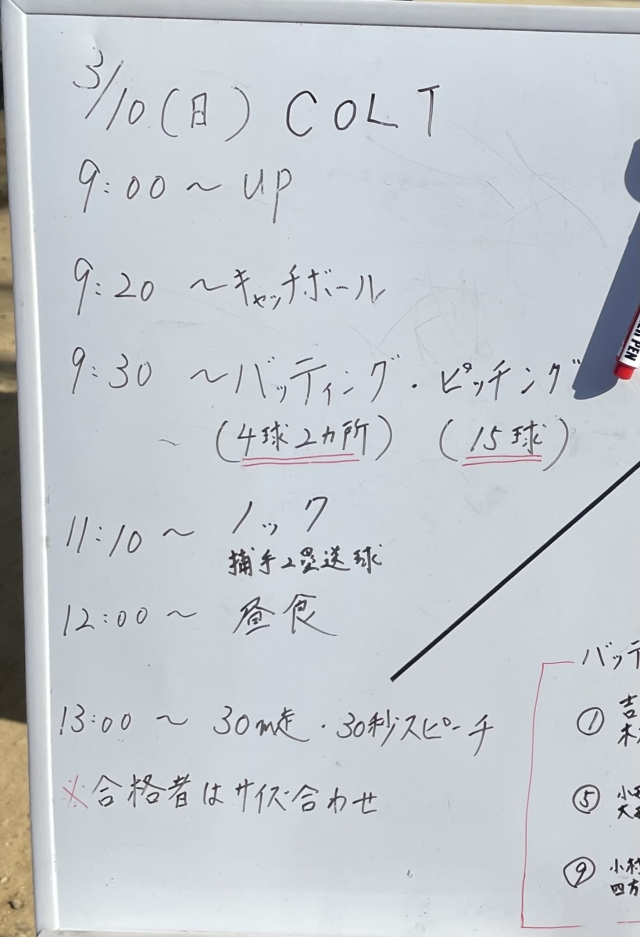 3/10(日) COLT
9:00～UP
9:20 ～キャッチボール
9:30 ～バッティング・ピッチング
～ (4球2カ所) (15球)
11:10～ ノック
捕手2塁送球
12:00～ 昼食
13:00 ～ 30m走・30秒スピーチ
※合格者はサイズ合わせ
PEN
バッテ
①吉
木
⑤小
大
⑨小林
四方